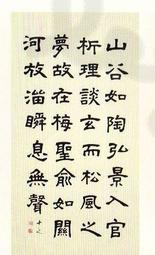 山谷如陶弘景入官
析理談玄而松風之
夢故在梅聖俞如關
河放溜瞬息無聲